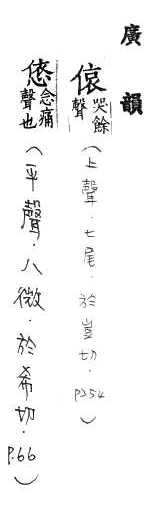 廣韻
偯哭餘聲(上聲.七尾.於豈切.P254)
㥋念痛聲也(平聲.八微.於希切.P.66)